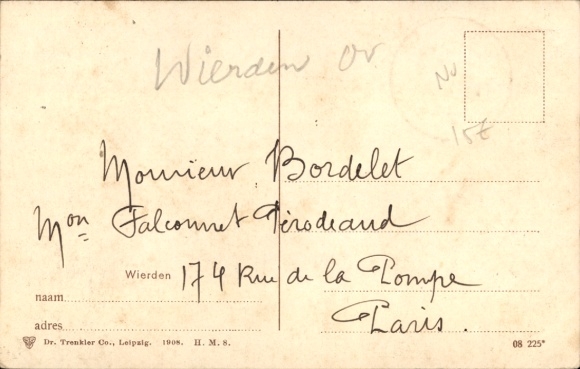 Wierden Ov
Nu
15€
Monsieur Bordelet
Mon Falconnet Pérodeaud
Wierden 174 Rue de la Pompe
naam
Paris.
adres
Dr. Trenkler Co., Leipzig. 1908. H. M. 8. 08 225*